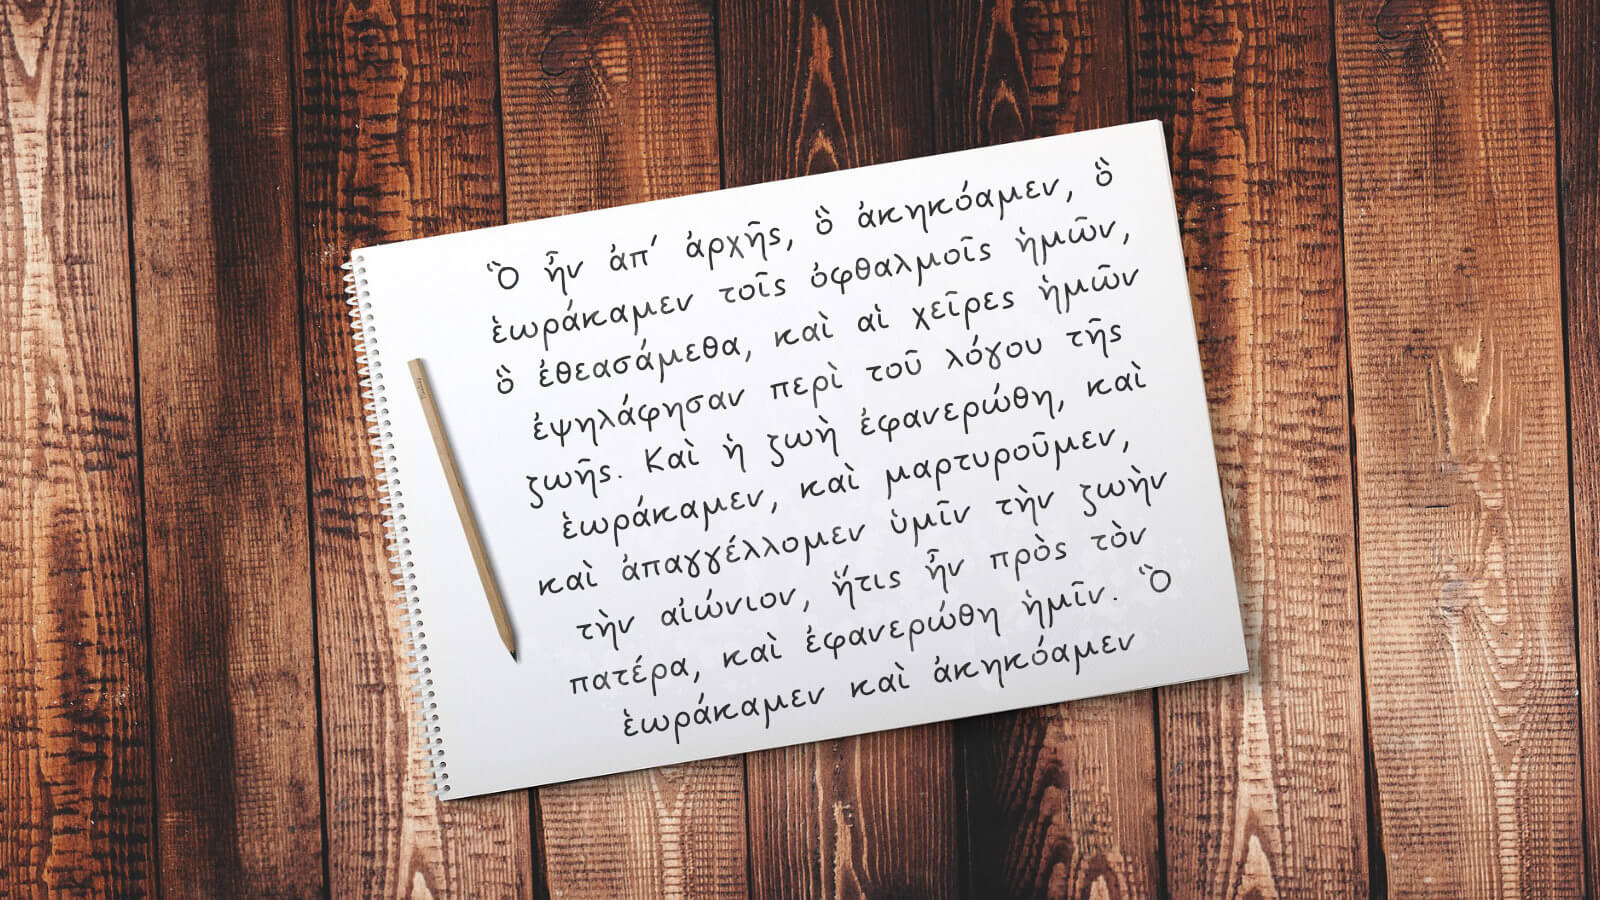 Ὃ ἦν ἀπ’ ἀρχῆς, ὃ ἀκηκόαμεν, ὃ
ἑωράκαμεν τοῖς ὀφθαλμοῖς ἡμῶν,
ὃ ἐθεασάμεθα, καὶ αἱ χεῖρες ἡμῶν
ἐψηλάφησαν περὶ τοῦ λόγου τῆς
ζωῆς. Καὶ ἡ ζωὴ ἐφανερώθη, καὶ
ἑωράκαμεν, καὶ μαρτυροῦμεν,
καὶ ἀπαγγέλλομεν ὑμῖν τὴν ζωὴν
τὴν αἰώνιον, ἥτις ἦν πρὸς τὸν
πατέρα, καὶ ἐφανερώθη ἡμῖν. Ὃ
ἑωράκαμεν καὶ ἀκηκόαμεν